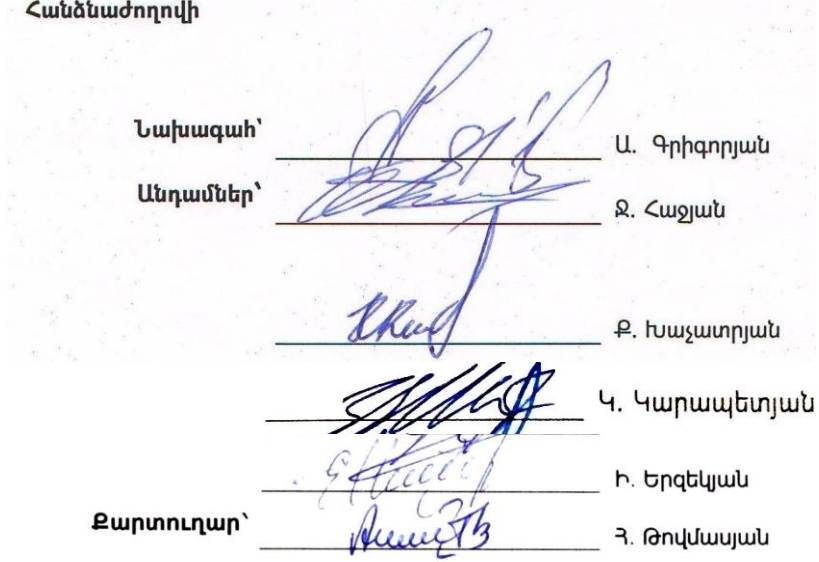 Հանձնաժողովի
Նախագահ՝ Ա. Գրիգորյան
Անդամներ՝ Ջ. Հաջյան
Ք. Խաչատրյան
Կ. Կարապետյան
Ի. Երզեկյան
Քարտուղար՝ Հ. Թովմասյան